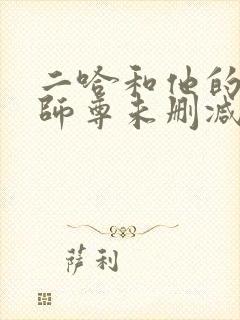 二哈和他的
師尊未删减
萨利